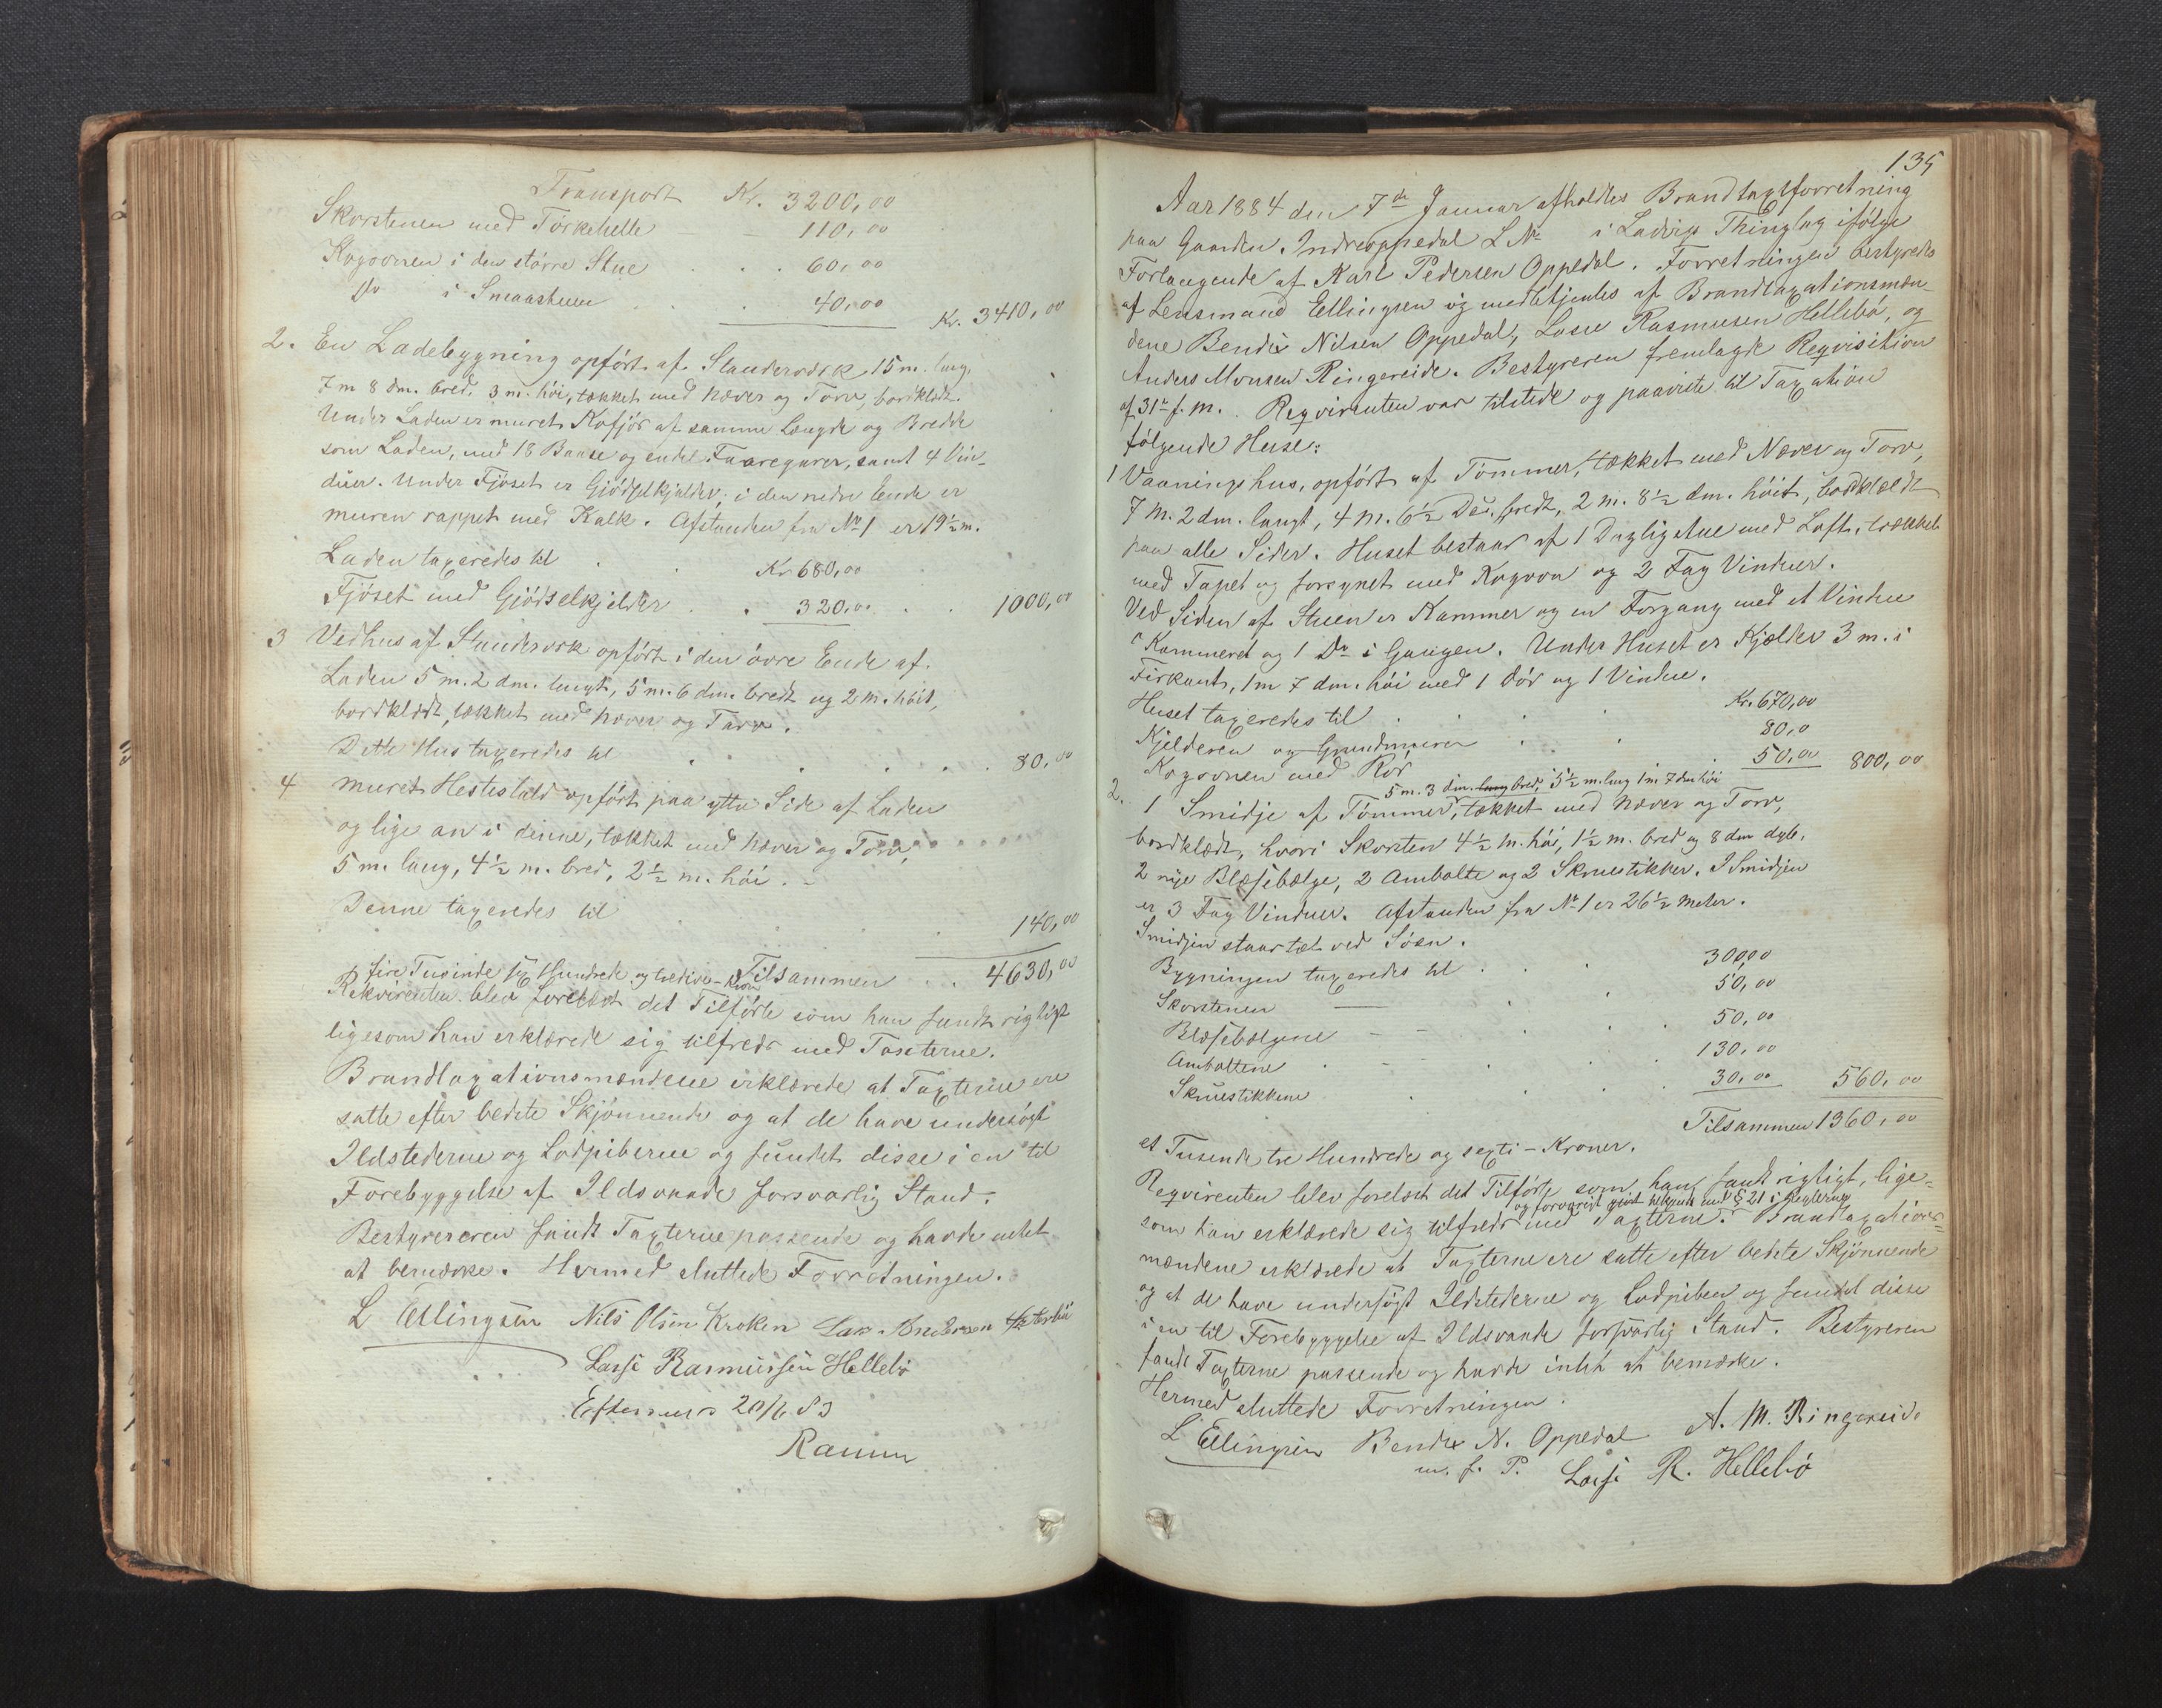 Transport Kr. 3200,00
Skorstenen med Törkehelle 110,00
Kogovnen i den større Stue 60,00
Do i Smaastuen 40,00 Kr. 3410,00
2. En Ladebygning opført af Standerværk 15 m. lang,
7 m 8 dm. bred, 3 m. höi, tækket med Næver og Torv, bordklædt.
Under Laden er muret Kofjös af samme Længde og Bredde
som Laden, med 18 Baase og endel Faaregarer, samt 4 Vin-
duer. Under Fjöset er Gjödselkjelder; i den nedre Ende er
muren rappet med Kalk. Afstanden fra No 1 er 19½ m.
Laden taxeredes til Kr 680,00
Fjöset med Gjödselkjelder 320,00 1000,00
3 Vedhus af Standerværk opfört i den övre Ende af
Laden 5 m. 2 dm. langt, 5 m. 6 dm. bredt og 2 m. höit,
bordklædt, tækket med Næver og Torv.
Dette Hus taxeredes til 80,00
4 muret Hestestald opfört paa yttre Side af Laden
og lige an i denne, tækket med Næver og Torv,
5 m. lang, 4½ m. bred, 2½ m. höi.
Denne taxeredes til 140,00
Tilsammen 4630,00
fire Tusinde sex Hundrede og tredive – Kroner
Rekvirenten blev forelæst det Tilförte som han fandt rigtigt
ligesom han erklærede sig tilfreds med Taxterne.
Brandtaxationsmændene erklærede at Taxterne ere
satte efter bedste Skjönnende og at de have undersögt
Ildstederne og Lodpiberne og fundet disse i en til
Forebyggelse af Ildsvaade forsvarlig Stand.
Bestyreren fandt Taxterne passende og havde intet
at bemærke. Hermed sluttede Forretningen.
L Ellingsen Nils Olsen Kroken Lars Andersen
Lasse Rasmussen Hellebö
Efterseet 20/6 83
Ramm
135
Aar 1884 den 7de Januar afholdtes Brandtaxtforretning
paa Gaarden Indreoppedal L No i Ladvigs Thinglag ifölge
Forlangende af Karl Pedersen Oppedal. Forretningen bestyredes
af Lensmand Ellingsen og medbetjentes af Brandtaxationsmæn-
dene Bendix Nilsen Oppedal, Lasse Rasmusen Hellebö, og
Anders Monsen Ringereide. Bestyreren fremlagde Reqvisition
af 31te f. m. Reqvirenten var tilstede og paaviste til Taxation
fölgende Huse:
1 Vaaningshus, opfört af Tömmer, tækket med Næver og Torv,
7 m. 2 dm. langt, 4 m. 6½ Des. bredt, 2 m. 8½ dm. höit, bordklædt
paa alle Sider. Huset bestaar af 1 Dagligstue med Loft, trækket
med Tapet og forsynet med Kogovn og 2 Fag Vinduer.
Ved Siden af Stuen er Kammer og en Forgang med et Vindue
i Kammeret og 1 Do i Gangen. Under Huset er Kjelder 3 m. i
Firkant, 1 m 7 dm. höi med 1 Dör og 1 Vindue.
Huset taxeredes til Kr. 670,00
Kjelderen og Grundmuren 80,0
Kogovnen med Rör 50,00 800,00
5 m. 3 dm. lang bred, 5½ m. lang 1 m. 7 dm höi
2. 1 Smidje af Tömmer, tækket med Næver og Torv,
bordklædt, hvori Skorsten 4½ m. höi, 1½ m. bred og 8 dm dyb,
2 nye Blæsebælge, 2 Ambolte og 2 Skruestikker. I Smidjen
er 3 Fag Vinduer. Afstanden fra No 1 er 26½ Meter.
Smidjen staar tæt ved Söen.
Bygningen taxeredes til 300,00
Skorstenen 50,00
Blæsebælgene 50,00
Amboltene 130,00
Skruestikkene 30,00 560,00
Tilsammen 1360,00
et Tusende tre Hundrede og sexti – Kroner.
Reqvirenten blev forelæst det Tilförte som han fandt rigtigt, lige-
og forövrigt gjort bekjent med § 21 i Reglerne
som han erklærede sig tilfreds med Taxterne. Brandtaxations-
mændene erklærede at Taxterne ere satte efter bedste Skjönnende
og at de have undersögt Ildstederne og Lodpiben og fundet disse
i en til Forebyggelse af Ildsvaade forsvarlig Stand. Bestyreren
fandt Taxterne passende og havde intet at bemærke.
Hermed sluttede Forretningen.
L Ellingsen Bendix N. Oppedal A. M. Ringereide
m. f. P. Lasse R. Hellebö